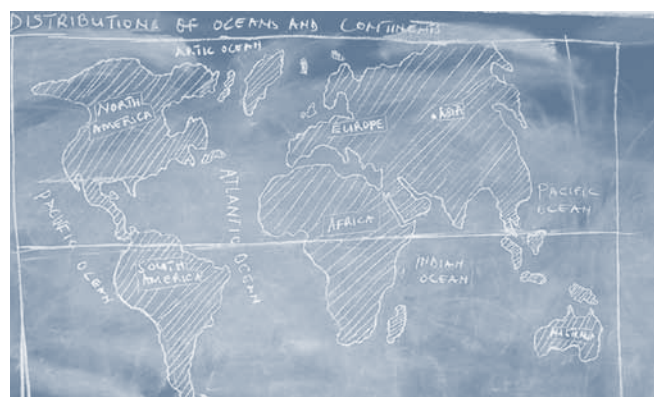 DISTRIBUTIONS OF OCEANS AND CONTINENTS
ARTIC OCEAN
NORTH
AMERICA
EUROPE
ASIA
PACIFIC
OCEAN
ATLANTIC OCEAN
PACIFIC
OCEAN
AFRICA
SOUTH
AMERICA
INDIAN
OCEAN